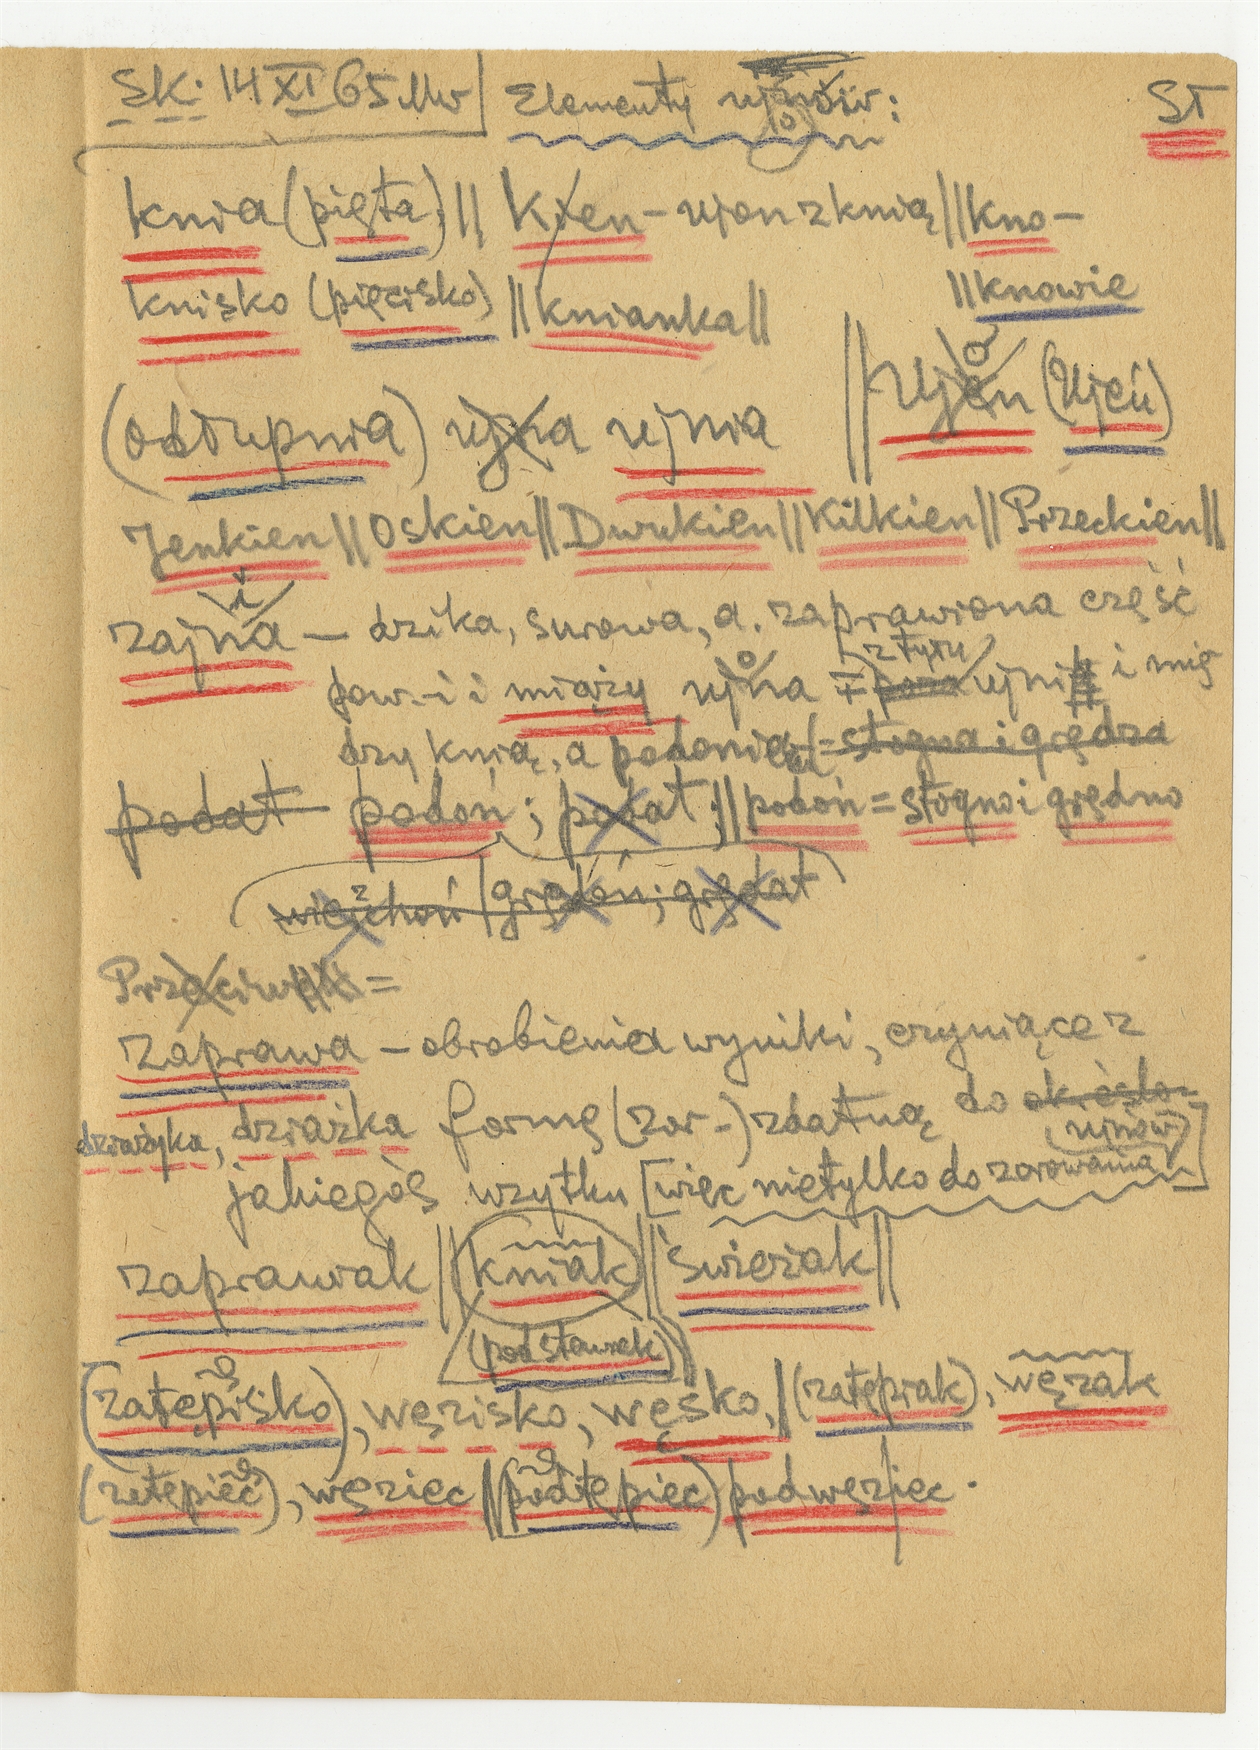 Sk: 14 XI 65 Mw | Elementy ujnów: ST
knia (pięta) || Kien - ujon z knią || kno-
knisko (pięcisko) || knianka || || knowie
(odłupnia) ujna ujnia || Ujon (Ujeń)
Jenkien || Oskien || Dwukien || Kilkien || Przeckien ||
zajnia — dzika, surowa, a. zaprawiona część
pow-i i miąższy ujna z tyłu ujni i mię
dzy knią, a podonią (= słogna i grędza
podat podoń; podat; || podoń = słogno i grędno
grędoń; grędat
Przeciw =
zaprawa - obrobienia wyniki, czyniące z
dziażyka, dziażka formę (zor-) zdatną do określo-
(ujnów)
jakiegoś wzytku [więc nietylko do zorowania]
zaprawiak || kniak || świeżak ||
(podstawek)
(zatępisko), węzisko, węsko, || (zatępiak), węzak
(zatępiec), węziec || (podtępiec) podwęziec.